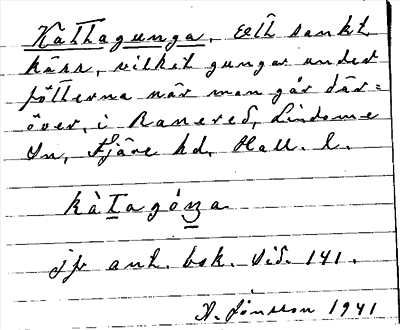 Kattagunga, Ett sankt
kärr, vilket gungar under
fötterna när man går där=
över, i Ranered, Lindome
Sn, Fjäre hd. Hall. l.
kàtagóŋa
jfr ant. bok. Sid. 141.
A. Jönsson 1941